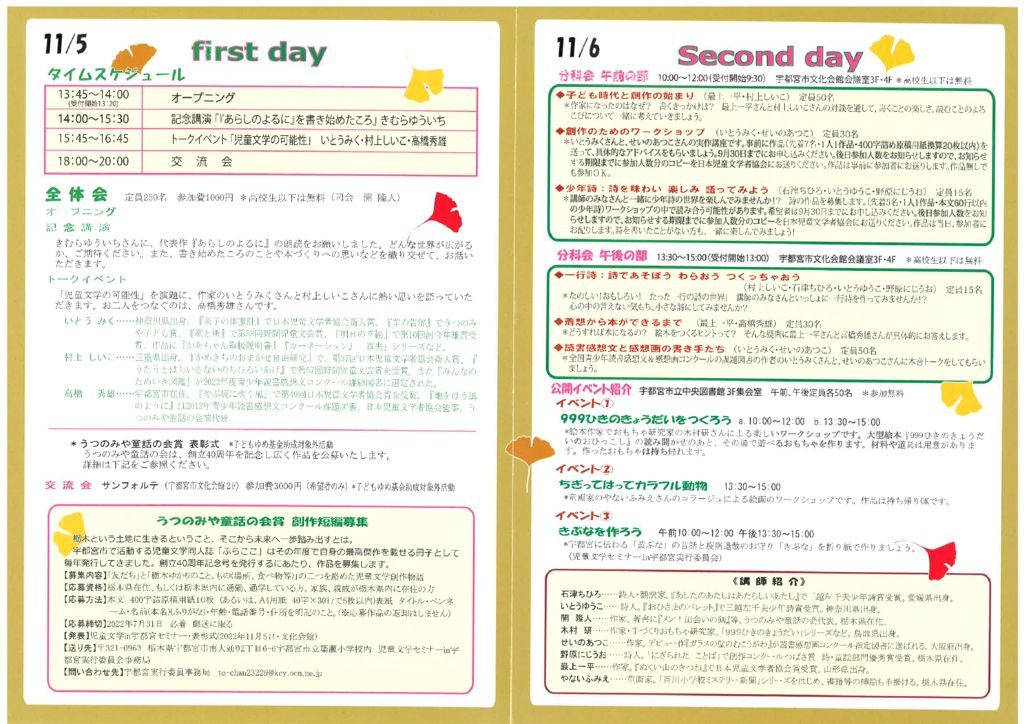 11/5 first day
タイムスケジュール
13:45～14:00 (受付開始13:20) オープニング
14:00～15:30 記念講演「『あらしのよるに』を書き始めたころ」きむらゆういち
15:45～16:45 トークイベント「児童文学の可能性」 いとうみく・村上しいこ・高橋秀雄
18:00～20:00 交 流 会
全体会 定員250名 参加費1000円 *高校生以下は無料（司会 開 隆人）
オープニング
記念講演
きむらゆういちさんに、代表作『あらしのよるに』の朗読をお願いしました。どんな世界が広がる
か、ご期待ください。また、書き始めたころのことや本づくりへの思いなどを織り交ぜて、お話い
ただきます。
トークイベント
「児童文学の可能性」を演題に、作家のいとうみくさんと村上しいこさんに熱い思いを語っていた
だきます。お二人をつなぐのは、高橋秀雄さんです。
いとう みく……神奈川県出身。『糸子の体重計』で日本児童文学者協会新人賞、『羊の告解』でうつのみ
や こども賞、『朔と新』で第58回野間児童文芸賞、『明日の幸福』で第10回今年
賞、作品に『かあちゃん取扱説明書』『カーネーション』 シリーズなど。
村上 しいこ……三重県出身。『かめきちのおまかせ自由研究』で、第37回日本児童文学者協会新人賞、『
うたうとはちいさないのちひろいあげ』で第53回野間児童文芸賞を受賞。また『みんな
のためいき図鑑』が2022年度青少年読書感想文コンクール課題図書に選定された。
高橋 秀雄……宇都宮市在住。『やぶ坂に吹く風』で第49回日本児童文学者協会賞を受賞。『地をはう風
のように』は2012年青少年読書感想文コンクール課題図書。日本児童文学者協会監事。う
つのみや童話の会代表。
*うつのみや童話の会賞 表彰式 *子どもゆめ基金助成対象外活動
うつのみや童話の会は、創立40周年を記念し広く作品を公募いたします。
詳細は下記をご参照ください。
交流会 サンフォルテ（宇都宮市文化会館2F） 参加費3000円（希望者のみ）*子どもゆめ基金助成対象外活動
うつのみや童話の会賞 創作短編募集
栃木という土地に生きるということ、そこから未来へ一歩踏み出すとは。
宇都宮市で活動する児童文学同人誌「ふらここ」はその年度で自身の最高傑作を載せる冊子として
毎年発行してきました。創立40周年記念号を発行するにあたり、作品を募集します。
【募集内容】「友だち」と「栃木ゆかりのこと、もの(場所、食べ物等)」の二つを絡めた児童文学創作物語
【応募資格】栃木県在住、もしくは栃木県内に通勤、通学している方。家族、親戚が栃木県内に在住の方
【応募方法】本文 400字詰原稿用紙10枚（あるいは、A4用紙 40字×30行で5枚以内)表紙 タイトル・ペンネ
ーム・名前(本名)(ふりがな)・年齢・電話番号・住所を明記のこと。（※応募作品の返却はしません）
【応募締切】2022年7月31日 必着 郵送に限る
【発表】児童文学in宇都宮セミナー・表彰式(2022年11月5日・文化会館)
【送り先】〒321-0963 栃木県宇都宮市南大通り2丁目6-6宇都宮市立簗瀬小学校内 児童文学セミナーin宇
都宮実行委員会事務局
【問い合わせ先】宇都宮実行委員会事務局 to-chan23229@key.ocn.ne.jp
11/6 Second day
分科会 午前の部 10:00～12:00(受付開始9:30) 宇都宮市文化会館会議室3F・4F *高校生以下は無料
◆子ども時代と創作の始まり（最上一平・村上しいこ）定員50名
*作家になったのはなぜ？ 書くきっかけは？ 最上一平さんと村上しいこさんの対談を通して、書くことの楽しさ、読むことのよろ
こびについて一緒に考えていきましょう。
◆創作のためのワークショップ（いとうみく・せいのあつこ）定員30名
*いとうみくさんと、せいのあつこさんの実作講座です。事前に作品(先着7名・1人1作品・400字詰め原稿用紙換算20枚以内)を
送って、具体的なアドバイスをもらいましょう。9月30日までにお申し込みください。後日参加人数をお知らせしますので、お知らせ
する期限までに参加人数分のコピーを日本児童文学者協会にお送りください。作品は事前に参加者にお送りします。作品無しで
も参加OK。
◆少年詩：詩を味わい 楽しみ 語ってみよう（石津ちひろ・いとうゆうこ・野原にじうお）定員15名
*講師のみなさんと一緒に少年詩の世界を楽しんでみませんか!? 詩の作品を募集します。(先着5名・1人1作品・本文60行以内
の少年詩)ワークショップの中で読み合う可能性があります。希望者は9月30日までにお申し込みください。後日参加人数をお知
らせしますので、お知らせする期限までに参加人数分のコピーを日本児童文学者協会にお送りください。作品は当日、参加者に
お配りします。詩を書いたことがない方も、一緒に楽しみましょう！
分科会 午後の部 13:30～15:00(受付開始13:00) 宇都宮市文化会館会議室3F・4F *高校生以下は無料
◆一行詩：詩であそぼう わらおう つくっちゃおう
（村上しいこ・石津ちひろ・いとうゆうこ・野原にじうお）定員15名
*たのしい！おもしろい！ たった一行の詩の世界！ 講師のみなさんといっしょに一行詩を作ってみませんか!?
心の中の言えない気もち、小さな詩にしてみませんか？
◆着想から本ができるまで （最上一平・高橋秀雄） 定員30名
*どうすれば本になるの？ 絵本をつくるヒントって？ そんな疑問に最上一平さんと高橋秀雄さんが具体的にお答えします。
◆読書感想文と感想画の書き手たち（いとうみく・せいのあつこ）定員50名
*全国青少年読書感想文&感想画コンクールの課題図書の作者のいとうみくさんと、せいのあつこさんに本音トークをしてもら
いましょう。
公開イベント紹介 宇都宮市立中央図書館 3F集会室 午前、午後定員各50名 *参加無料
イベント①
999ひきのきょうだいをつくろう a. 10:00～12:00 b. 13:30～15:00
*絵本作家でおもちゃ研究家の木村研さんによる楽しいワークショップです。大型絵本『999ひきのきょうだ
いのおひっこし』の読み聞かせのあと、その場で遊べるおもちゃを作ります。材料や道具は用意がありま
す。作ったおもちゃは持ち帰れます。
イベント②
ちぎってはってカラフル動物 13:30～15:00
*童画家のやないふみえさんのコラージュによる絵画のワークショップです。作品は持ち帰りOKです。
イベント③
きぶなを作ろう 午前10:00～12:00 午後13:30～15:00
*宇都宮に伝わる「黄ぶな」の昔話と疫病退散のお守り「きぶな」を折り紙で作りましょう。
（児童文学セミナーin宇都宮実行委員会）
《講師紹介》
石津ちひろ……詩人、翻訳家。『あしたのあたしはあたらしいあたし』で三越左千夫少年詩賞受賞。愛媛県出身。
いとうゆうこ……詩人。『おひさまのパレット』で三越左千夫少年詩賞受賞。神奈川県出身。
開 隆人……作家。著書に『メン！出会いの剣』等。うつのみや童話の会代表。栃木県在住。
木村 研……作家・手づくりおもちゃ研究家。「999ひきのきょうだい」シリーズなど。鳥取県出身。
せいのあつこ……作家。デビュー作『ガラスの壁のむこうがわ』が読書感想画コンクール指定図書に選ばれる。大阪府出身。
野原にじうお……詩人。『にぎられた ことば』で創作コンクールつばさ賞 詩・童謡部門優秀賞受賞。栃木県在住。
最上一平……作家。『ぬくい山のきつね』で日本児童文学者協会賞受賞。山形県出身。
やないふみえ……童画家。「百川小学校ミステリー新聞」シリーズをはじめ、書籍等の挿絵も手掛ける。栃木県在住。